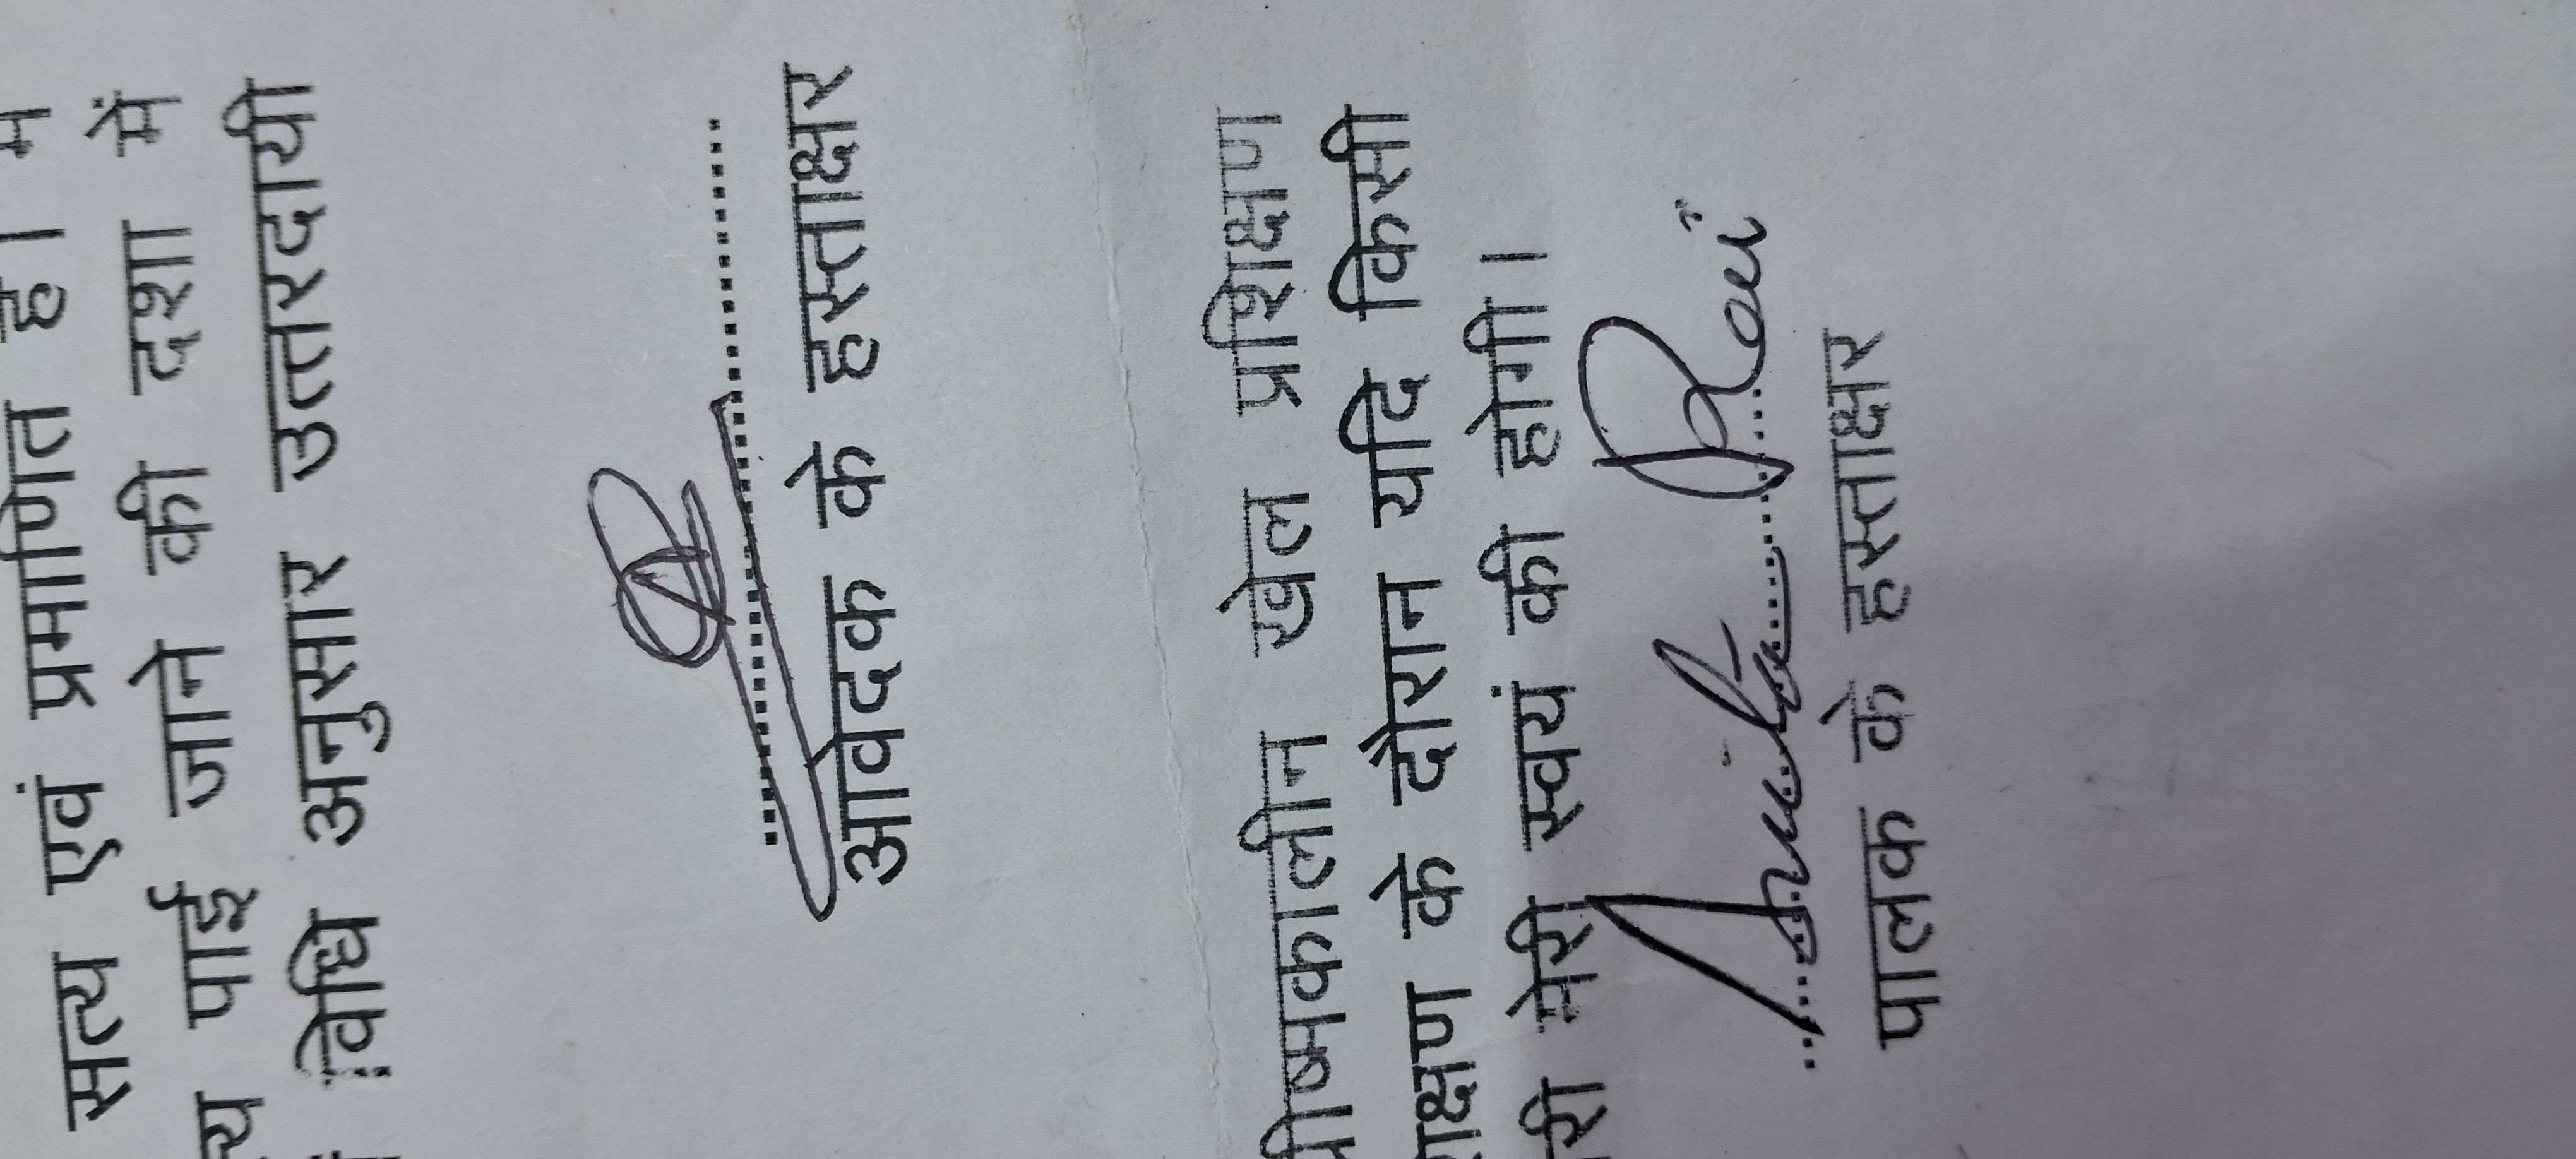 सत्य एवं प्रमाणित है। मैं
पाई जाने की दशा में
विधि अनुसार उत्तरदायी
आवेदक के हस्ताक्षर
ग्रीष्मकालीन खेल प्रशिक्षण
के दौरान यदि किसी
मेरी स्वयं की होगी।
Rai
पालक के हस्ताक्षर